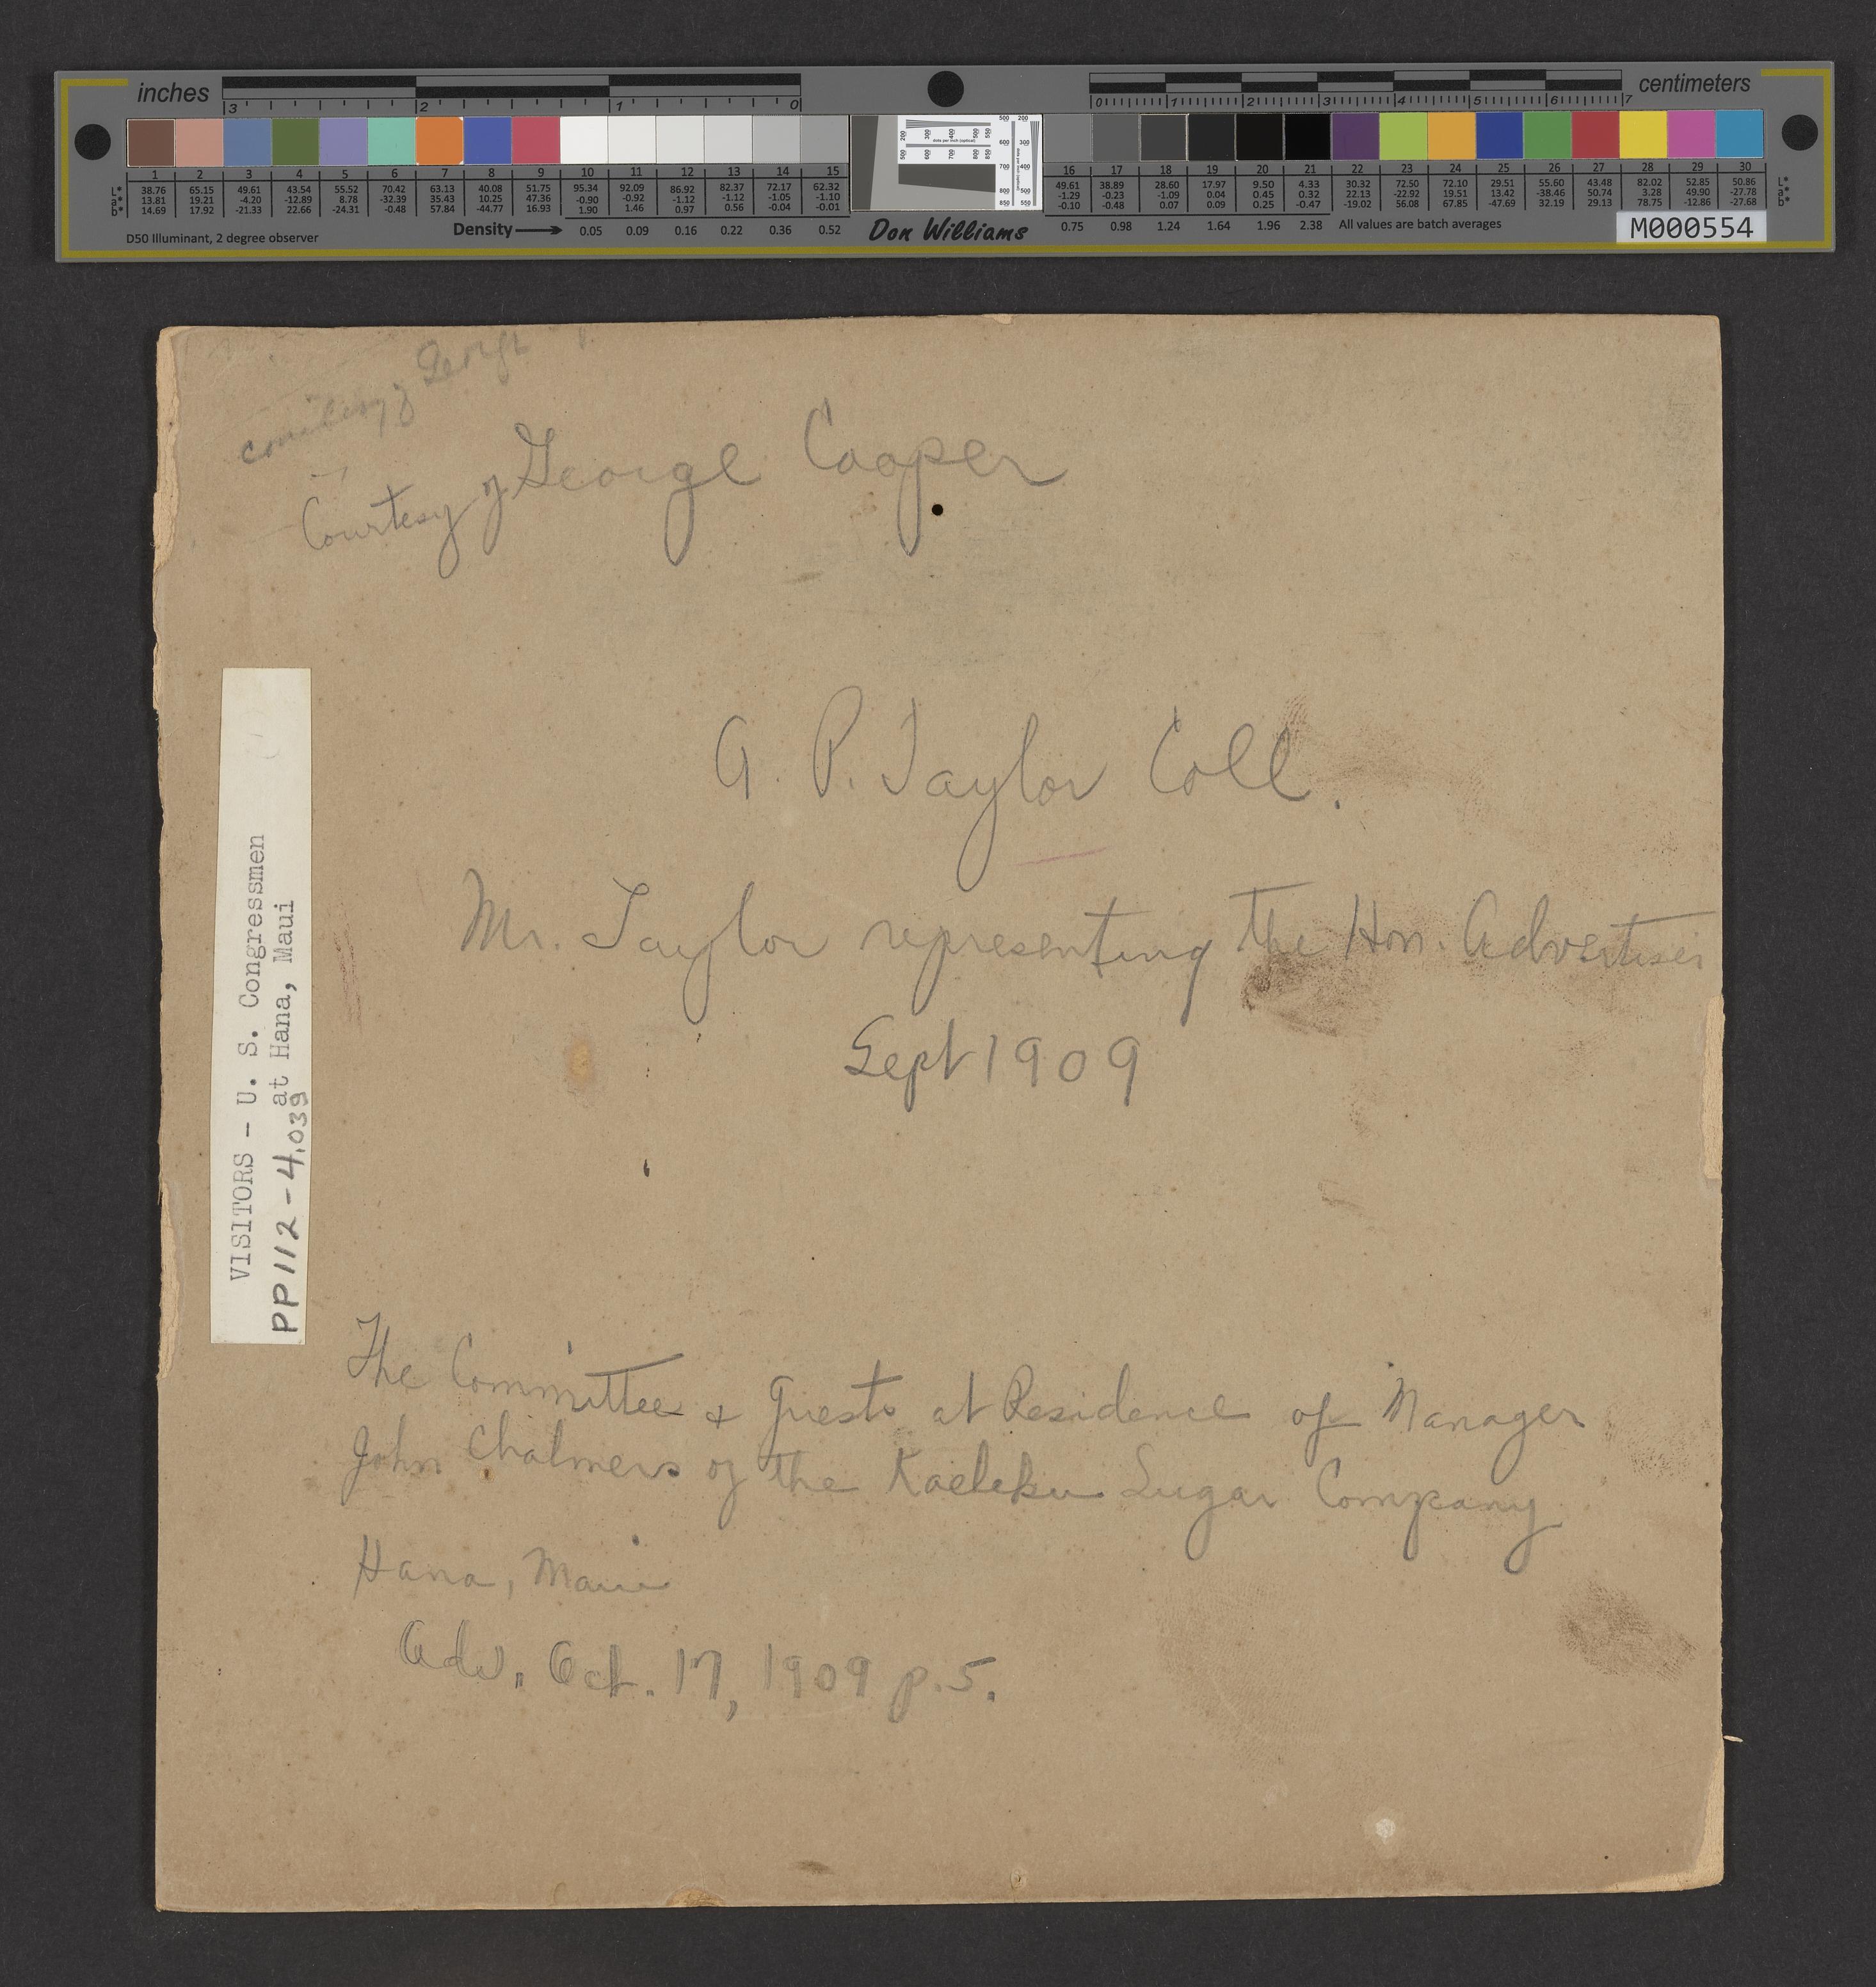 inches
centimeters
3 2 1 0
0 1 2 3 4 5 6 7
1 2 3 4 5 6 7 8 9 10 11 12 13 14 15
16 17 18 19 20 21 22 23 24 25 26 27 28 29 30
L* 38.76 65.15 49.61 43.54 55.52 70.42 63.13 40.08 51.75 95.34 92.09 86.92 82.37 72.17 62.32
a* 13.81 19.21 -4.20 -12.89 8.78 -32.39 35.43 10.25 47.36 -0.90 -0.92 -1.12 -1.12 -1.05 -1.10
b* 14.69 17.92 -21.33 22.66 -24.31 -0.48 57.84 -44.77 16.93 1.90 1.46 0.97 0.56 -0.04 -0.01
49.61 38.89 28.60 17.97 9.50 4.33 30.32 72.50 72.10 29.51 55.60 43.48 82.02 52.85 50.86 L*
-1.29 -0.23 -1.09 0.04 0.45 0.32 22.13 -22.92 19.51 3.42 -38.46 50.74 3.28 49.90 -27.78 a*
-0.10 -0.48 0.07 0.09 0.25 -0.47 -19.02 56.08 67.85 -47.69 32.19 29.13 78.75 -12.86 -27.68 b*
D50 Illuminant, 2 degree observer
Density 0.05 0.09 0.16 0.22 0.36 0.52
Don Williams
0.75 0.98 1.24 1.64 1.96 2.38 All values are batch averages
M000554
Courtesy of George Cooper
A. P. Taylor Coll.
Mr. Taylor representing the Hon. Advertiser
Sept 1909
VISITORS - U. S. Congressmen
at Hana, Maui
PP112-4.039
The Committee & Guests at Residence of Manager
John Chalmers of the Kaeleku Sugar Company
Hana, Maui
Adv. Oct. 17, 1909 p.5.